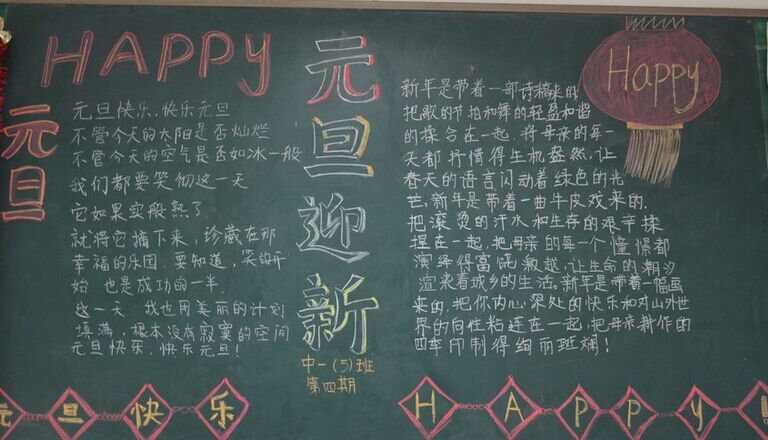 HAPPY
元旦
元旦快乐,快乐元旦
不管今天的太阳是否灿烂
不管今天的空气是否如冰一般
我们都要笑吻这一天
它如果实般熟了
就将它摘下来,珍藏在那
幸福的乐园.要知道,笑的开
始 也是成功的一半.
这一天 我也用美丽的计划
填满,根本没有寂寞的空间
元旦快乐,快乐元旦!
元旦迎新
中一(5)班
第四期
Happy
新年是带着一部诗稿来的.
把歌的节拍和舞的轻盈和谐
的揉合在一起.将母亲的每一
天都抒情得生机盎然,让
春天的语言闪动着绿色的光
芒.新年是带着一曲牛皮戏来的.
把滚烫的汗水和生存的艰辛揉
捏在一起,把母亲的每一个憧憬都
演绎得富饶激越,让生命的潮汐
渲染着城乡的生活.新年是带着一幅画
来的,把你内心深处的快乐和对山外世
界的向往粘连在一起,把母亲耕作的
四季印制得绚丽斑斓!
元旦快乐
HAPPY!